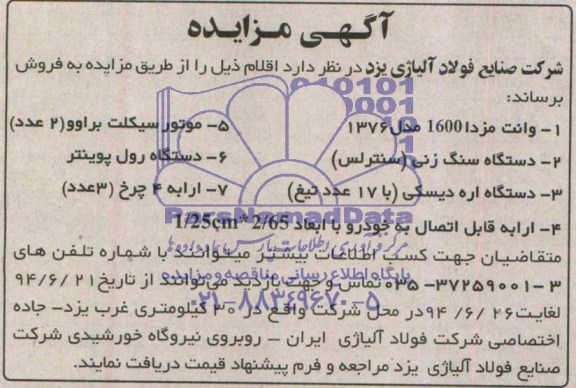 آگهی مزایده
شرکت صنایع فولاد آلیاژی یزد در نظر دارد اقلام ذیل را از طریق مزایده به فروش
برساند:
۱- وانت مزدا 1600 مدل ۱۳۷۶
۵- موتور سیکلت براوو (۲ عدد)
۲- دستگاه سنگ زنی (سنترلس)
۶- دستگاه رول پوینتر
۳- دستگاه اره دیسکی (با ۱۷ عدد تیغ)
۷- ارابه ۴ چرخ (۳عدد)
۴- ارابه قابل اتصال به خودرو با ابعاد 2/65*1/25cm
متقاضیان جهت کسب اطلاعات بیشتر میتوانند با شماره تلفن های
۳-۳۷۲۵۹۰۰۱-۰۳۵ تماس و جهت بازدید می‌توانند از تاریخ ۹۴/۶/۲۱
لغایت ۹۴/۶/۲۶ در محل شرکت واقع در ۳۰ کیلومتری غرب یزد- جاده
اختصاصی شرکت فولاد آلیاژی ایران - روبروی نیروگاه خورشیدی شرکت
صنایع فولاد آلیاژی یزد مراجعه و فرم پیشنهاد قیمت دریافت نمایند.
ParsNamadData
مرکز فرآوری اطلاعات پارس نماد داده ها
پایگاه اطلاع رسانی مناقصه و مزایده
۰۲۱-۸۸۳۴۹۶۷۰-۵